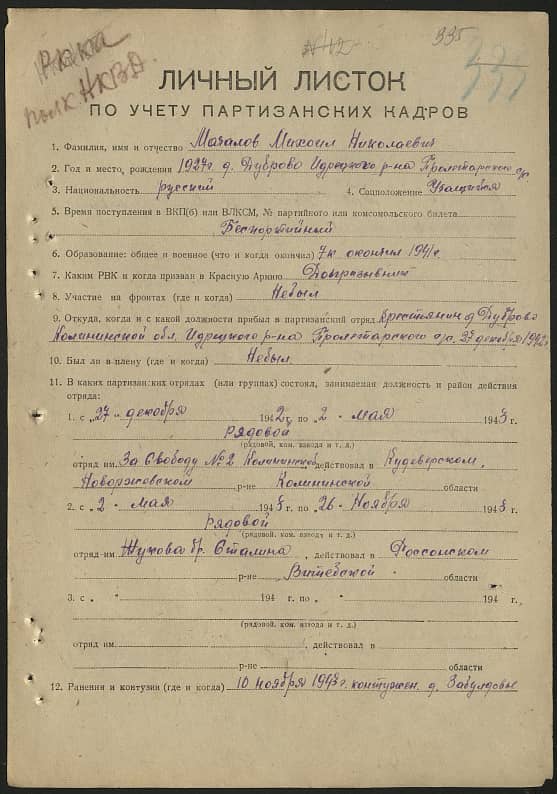 РККА
полк НКВД.
№42
335
ЛИЧНЫЙ ЛИСТОК
ПО УЧЕТУ ПАРТИЗАНСКИХ КАДРОВ
1. Фамилия, имя и отчество Мачалов Михаил Николаевич
2. Год и место, рождения 1927г д. Дуброво Идрецкого р-на Пролетарского с/с.
3. Национальность русский 4. Соцположение Учащийся
5. Время поступления в ВКП(б) или ВЛКСМ, № партийного или комсомольского билета
Беспартийный
6. Образование: общее и военное (что и когда окончил) 7 кл окончил 1941г.
7. Каким РВК и когда призван в Красную Армию Допризывный
8. Участие на фронтах (где и когда) Небыл
9. Откуда, когда и с какой должности прибыл в партизанский отряд Крестьянин д Дуброво
Калининской обл. Идрецкого р-на Пролетарского с/с. 27 декабря 1942г
10. Был ли в плену (где и когда) Небыл
11. В каких партизанских отрядах (или группах) состоял, занимаемая должность и район действия
отряда:
1. с „27„ декабря 1942г. по 2 „ мая 1943 г.
рядовой
(рядовой, ком. взвода и т. д.)
отряд им. За Свободу №2 Калининской действовал в Кудеверском,
Новоржевском р-не Калининской области
2. с „2 „ мая 1943 г. по „26„ Ноября 1943 г.
рядовой
(рядовой, ком. взвода и т. д.)
отряд-им Жукова бр. Сталина, действовал в Россонском
р-не Витебской области
3. с „ „ 194 г. по „ „ 194 г.,
(рядовой, ком. взвода и т. д.)
отряд им. , действовал в
р-не области
12. Ранения и контузии (где и когда) 10 ноября 1943г. контужен. д.